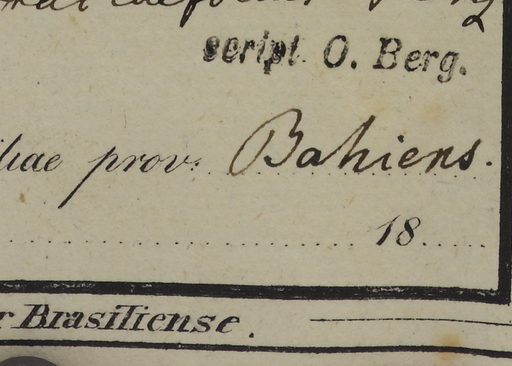 script. O. Berg.
iliae prov: Bahiens.
18
r Brasiliense.